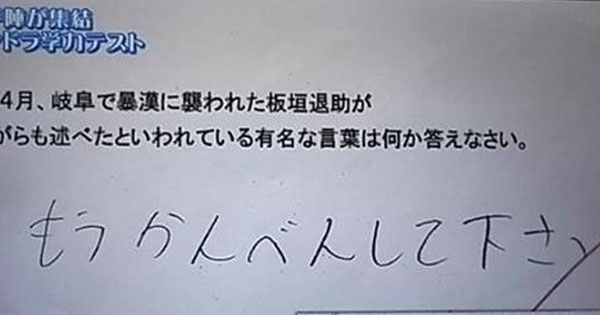 陣が集結
ドラ学力テスト
4月、岐阜で暴漢に襲われた板垣退助が
がらも述べたといわれている有名な言葉は何か答えなさい。
もうかんべんして下さい